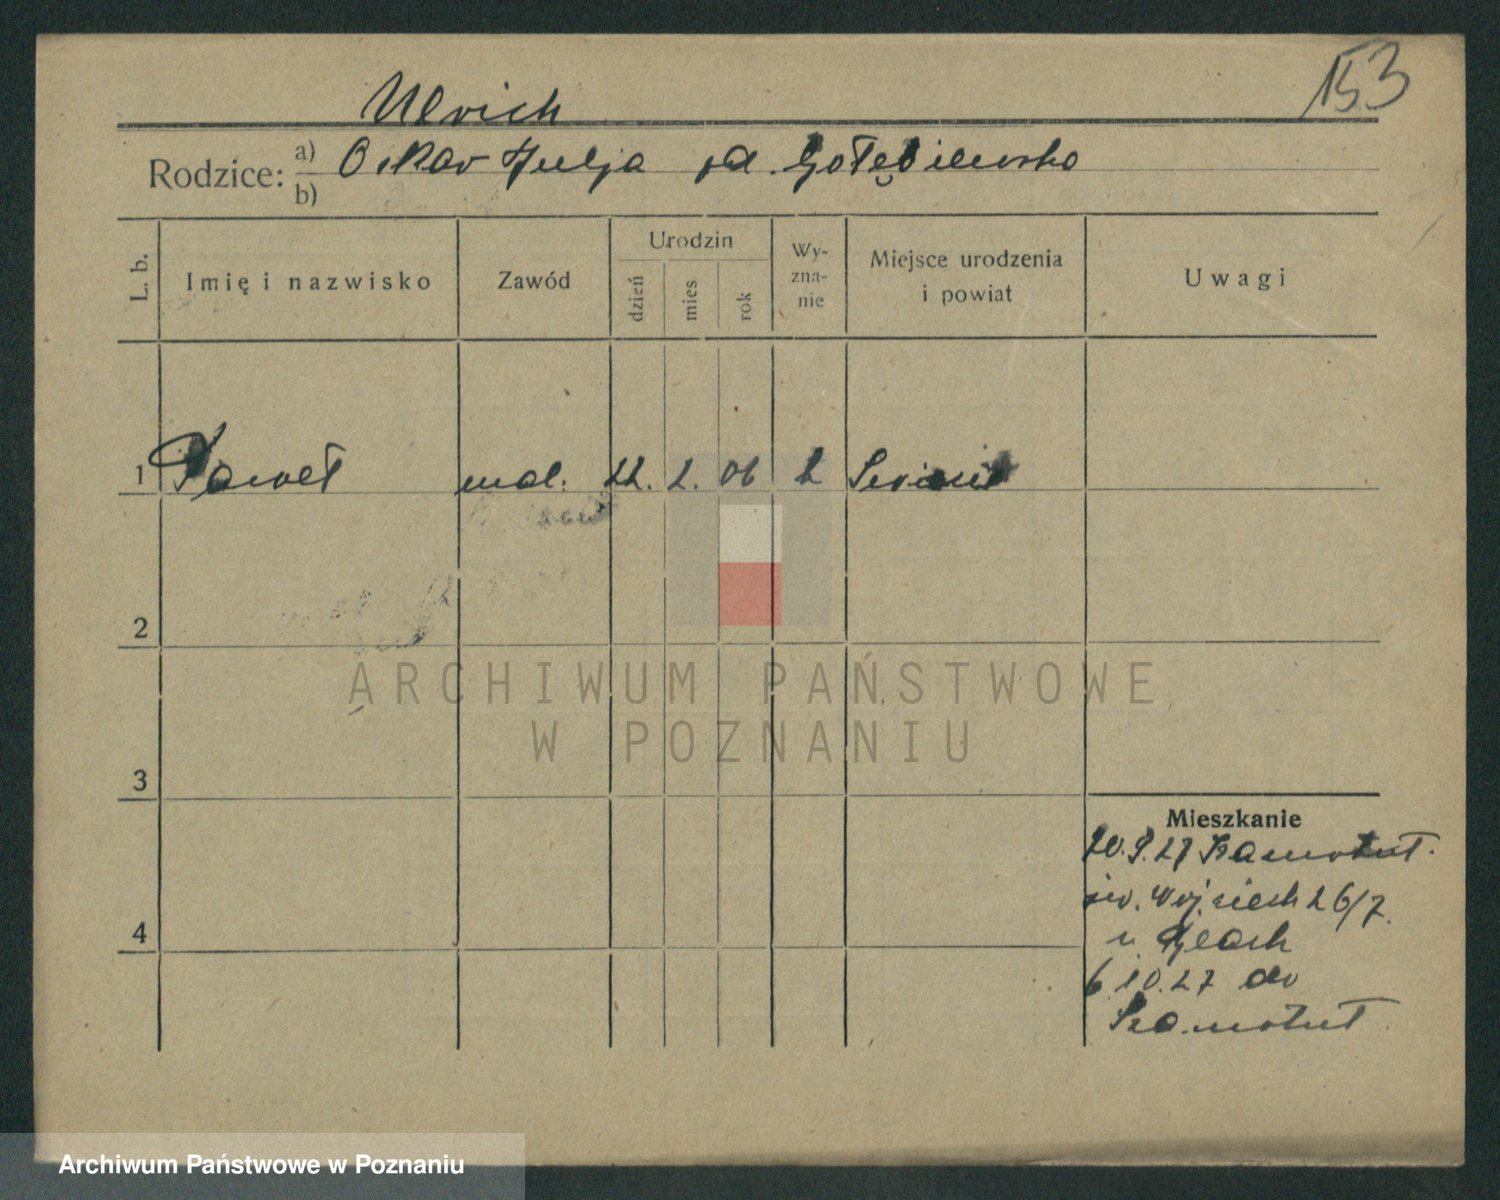 153
Ulrich
Rodzice: a) Oskar Julja z d. Gołębiewska
b)
L. b. Imię i nazwisko Zawód Urodzin dzień mies. rok Wy-zna-nie Miejsce urodzenia i powiat Uwagi
1 Paweł mal. 22. 2. 06
2
ARCHIWUM PAŃSTWOWE
W POZNANIU
3
Mieszkanie
20.9.27 Szamotuł.
św. Wojciech 26/7
4
u
6.10.27 do
Szamotuł
Archiwum Państwowe w Poznaniu